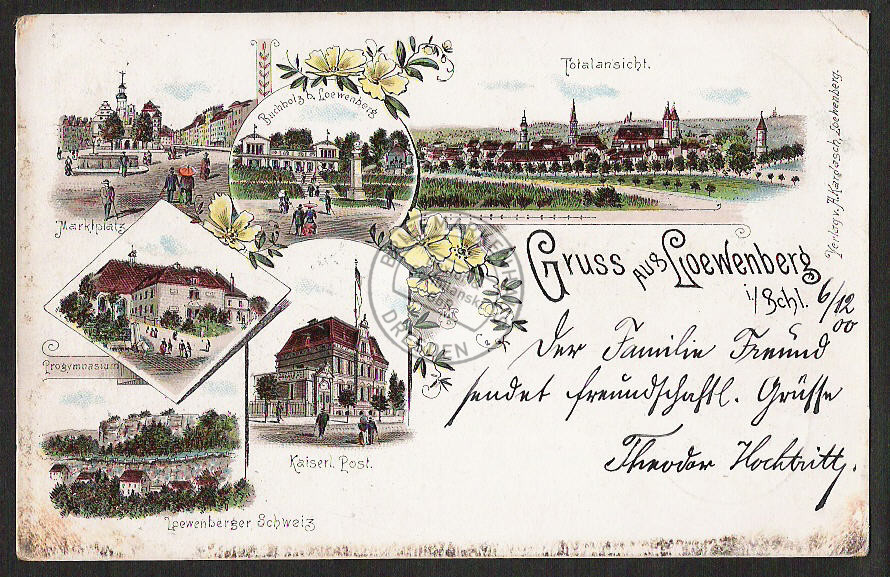 Totalansicht.
Buchholz b. Loewenberg.
Marktplatz
Verlag v. A. Kardasch, Loewenberg.
Gruss aus Loewenberg
i/Schl.
6/12
00
Der Familie Freund
sendet freundschaftl. Grüsse
Theodor Hochbritt.
Progymnasium
Kaiserl. Post.
Loewenberger Schweiz
DRESDEN